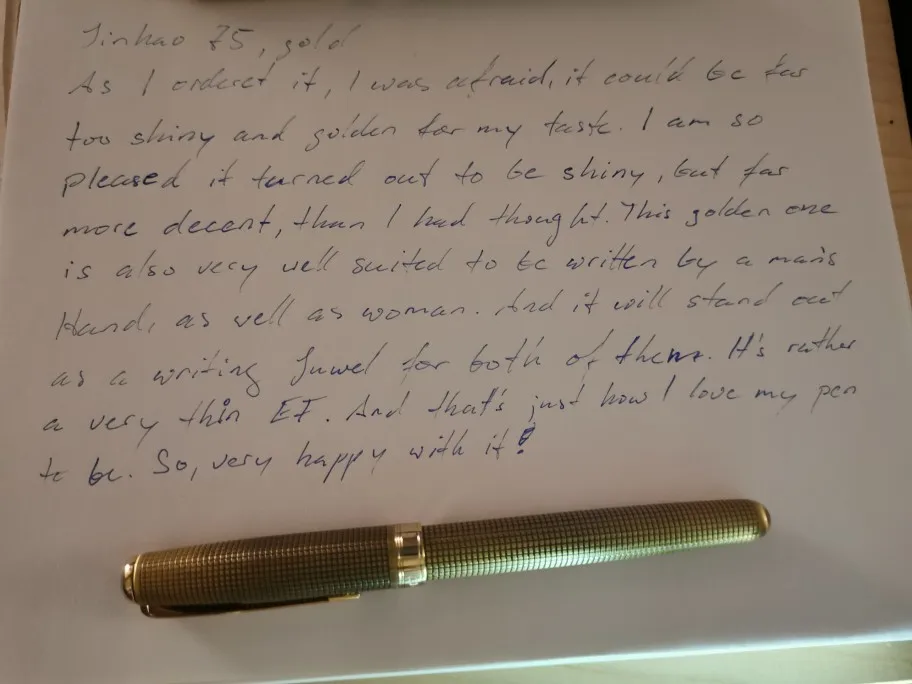 Jinhao 75, gold
As I orderet it, I was afraid, it could be far
too shiny and golden for my taste. I am so
pleased it turned out to be shiny, but far
more decent, than I had thought. This golden one
is also very well suited to be written by a man's
Hand, as well as woman. And it will stand out
as a writing Juwel for both of them. It's rather
a very thin EF. And that's just how I love my pen
to be. So, very happy with it!